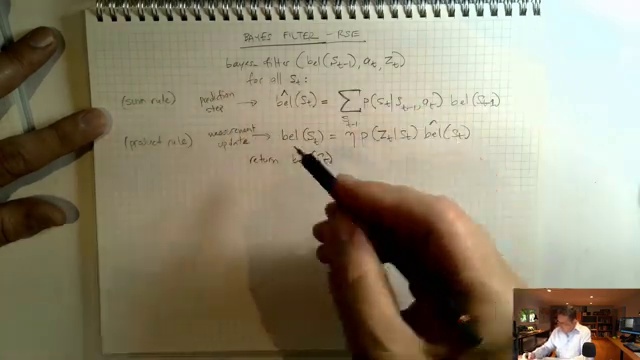 BAYES FILTER - RSE
bayes filter (bel(S_{t-1}), a_t, Z_t)
for all S_t:
(sum rule) prediction step → b̂el(S_t) = ∑_{S_{t-1}} p(S_t|S_{t-1}, a_t) bel(S_{t-1})
(product rule) measurement update → bel(S_t) = η p(Z_t|S_t) b̂el(S_t)
return